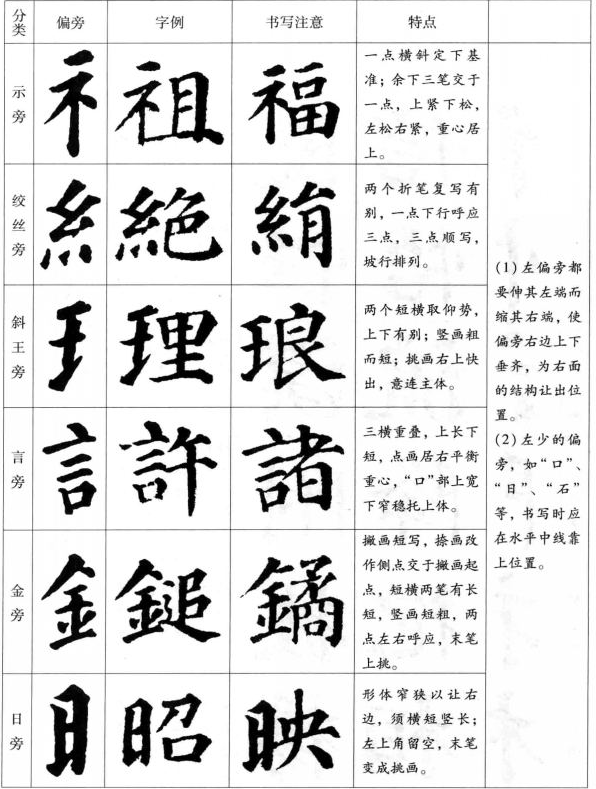 分类 偏旁 字例 书写注意 特点
示旁 礻 祖 福
一点横斜定下基
准；余下三笔交于
一点，上紧下松，
左松右紧，重心居
上。
绞丝旁 糹 絕 絹
两个折笔复写有
别，一点下行呼应
三点，三点顺写，
坡行排列。
斜王旁 王 理 琅
两个短横取仰势，
上下有别；竖画粗
而短；挑画右上快
出，意连主体。
言旁 言 許 諸
三横重叠，上长下
短，点画居右平衡
重心，“口”部上宽
下窄稳托上体。
金旁 金 鎚 鐍
撇画短写，捺画改
作侧点交于撇画起
点，短横两笔有长
短，竖画短粗，两
点左右呼应，末笔
上挑。
日旁 日 昭 映
形体窄狭以让右
边，须横短竖长；
左上角留空，末笔
变成挑画。
(1)左偏旁都
要伸其左端而
缩其右端，使
偏旁右边上下
垂齐，为右面
的结构让出位
置。
(2)左少的偏
旁，如“口”、
“日”、“石”
等，书写时应
在水平中线靠
上位置。